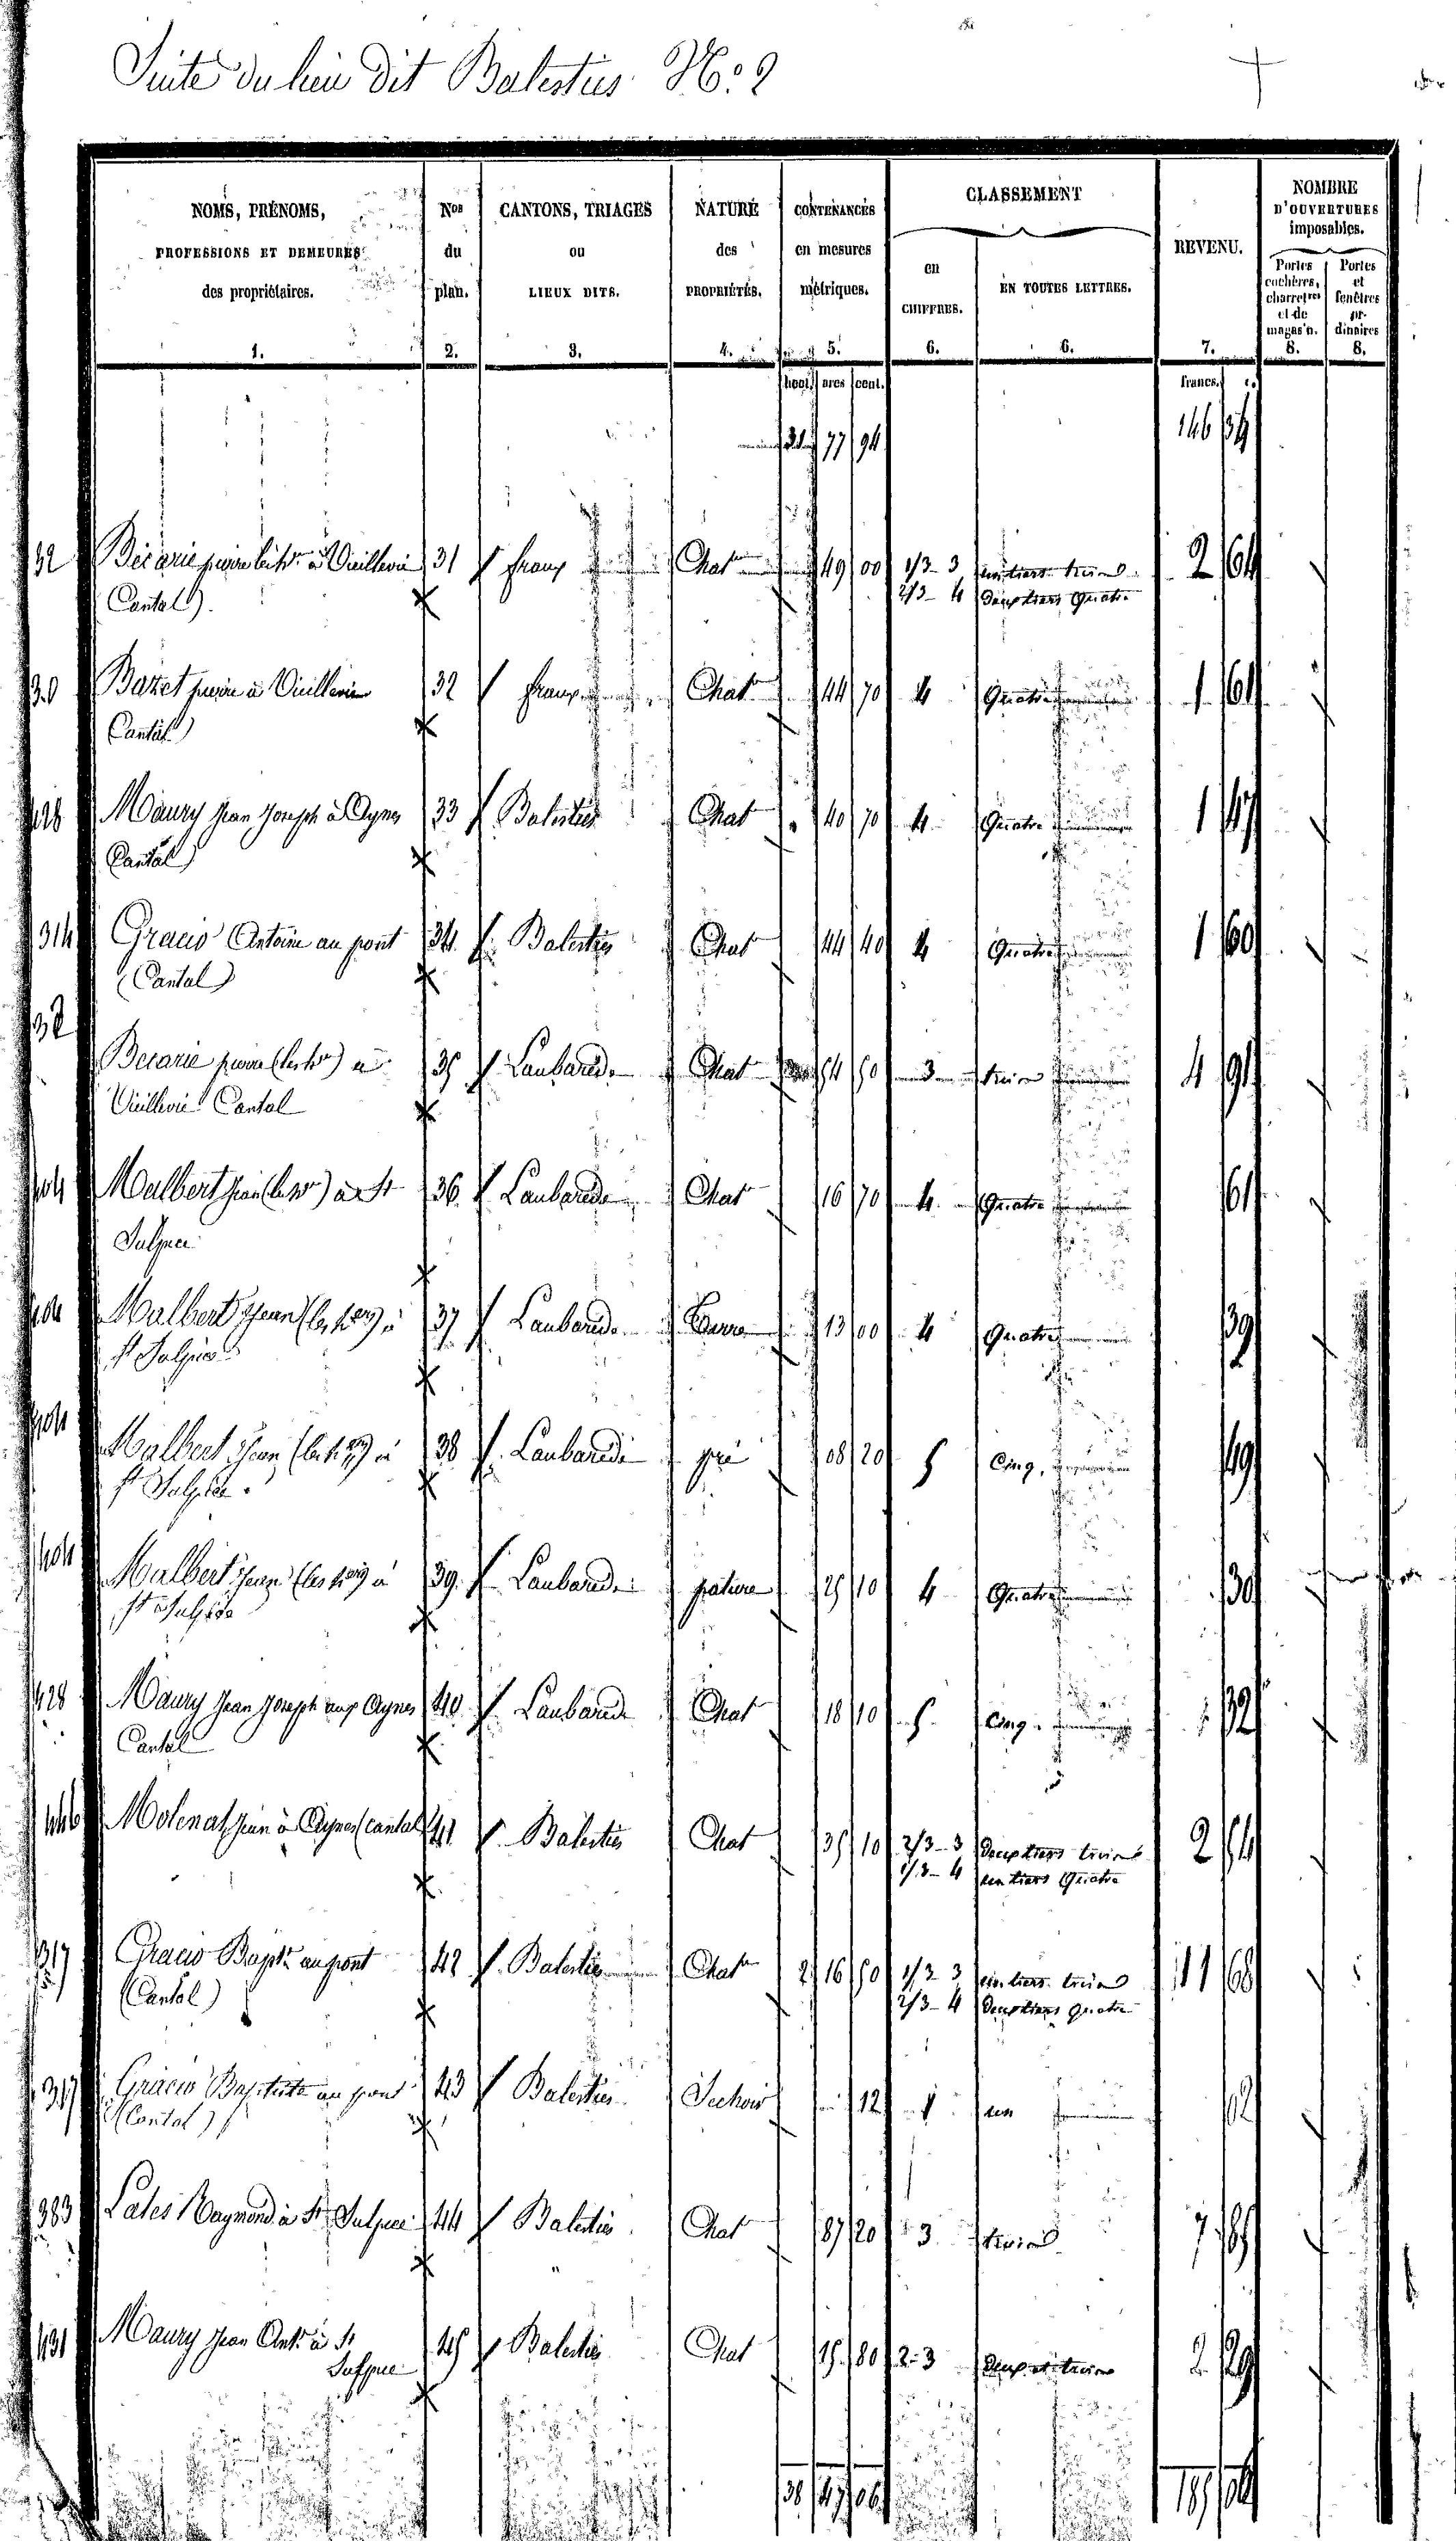 Suite du lieu dit Balesties N.o 2
NOMS, PRÉNOMS, PROFESSIONS ET DEMEURES des propriétaires. 1.
Nos du plan. 2.
CANTONS, TRIAGES ou LIEUX DITS. 3.
NATURE des PROPRIÉTÉS. 4.
CONTENANCES en mesures métriques. 5.
CLASSEMENT
en CHIFFRES. 6.
EN TOUTES LETTRES. 6.
REVENU. 7.
NOMBRE D'OUVERTURES imposables.
Portes cochères, charretres et de magas'n. 8.
Portes et fenêtres or- dinaires 8.
hect. ares cent. francs. c.
77 94 146 34
32 Becarie pierre à Vieillevie 31 fraux Chat 49 00 1/3 3 un tiers trois 2 64
(Cantal) 2/3 4 Deux tiers Quatre
30 Bazet pierre à Vieillevie 32 fraux Chat 44 70 4 Quatre 1 61
(Cantal)
428 Maury Jean Joseph à Aynes 33 Balesties Chat 40 70 4 Quatre 1 47
(Cantal)
314 Antoine au pont 34 Balesties Chat 44 40 4 Quatre 1 60
(Cantal)
32
Becarie pierre à 35 Laubarede Chat 54 50 3 trois 4 91
Vieillevie Cantal
404 Malbert Jean à St 36 Laubarede Chat 16 70 4 Quatre 61
Sulpice
404 Malbert Jean à 37 Laubarede Terre 13 00 4 Quatre 39
St Sulpice
404 Malbert Jean à 38 Laubarede pré 08 20 5 Cinq 49
St Sulpice
404 Malbert Jean à 39 Laubarede pature 25 10 4 Quatre 30
St Sulpice
428 Maury Jean Joseph aux Aynes 40 Laubarede Chat 18 10 5 Cinq 32
Cantal
446 Molenat Jean à Aynes (cantal) 41 Balesties Chat 35 10 2/3 3 Deux tiers trois 2 54
1/3 4 un tiers Quatre
317 Bapte au pont 42 Balesties Chat 2 16 50 1/3 3 un tiers trois 11 68
(Cantal) 2/3 4 Deux tiers quatre
317 Baptiste au pont 43 Balesties Sechoir 12 1 un 12
(Cantal)
383 Lales Raymond à St Sulpice 44 Balesties Chat 87 20 3 trois 7 85
431 Maury Jean Ant. à St 45 Balesties Chat 19 80 2-3 Deux et trois 2 29
Sulpice
38 47 06 185 06